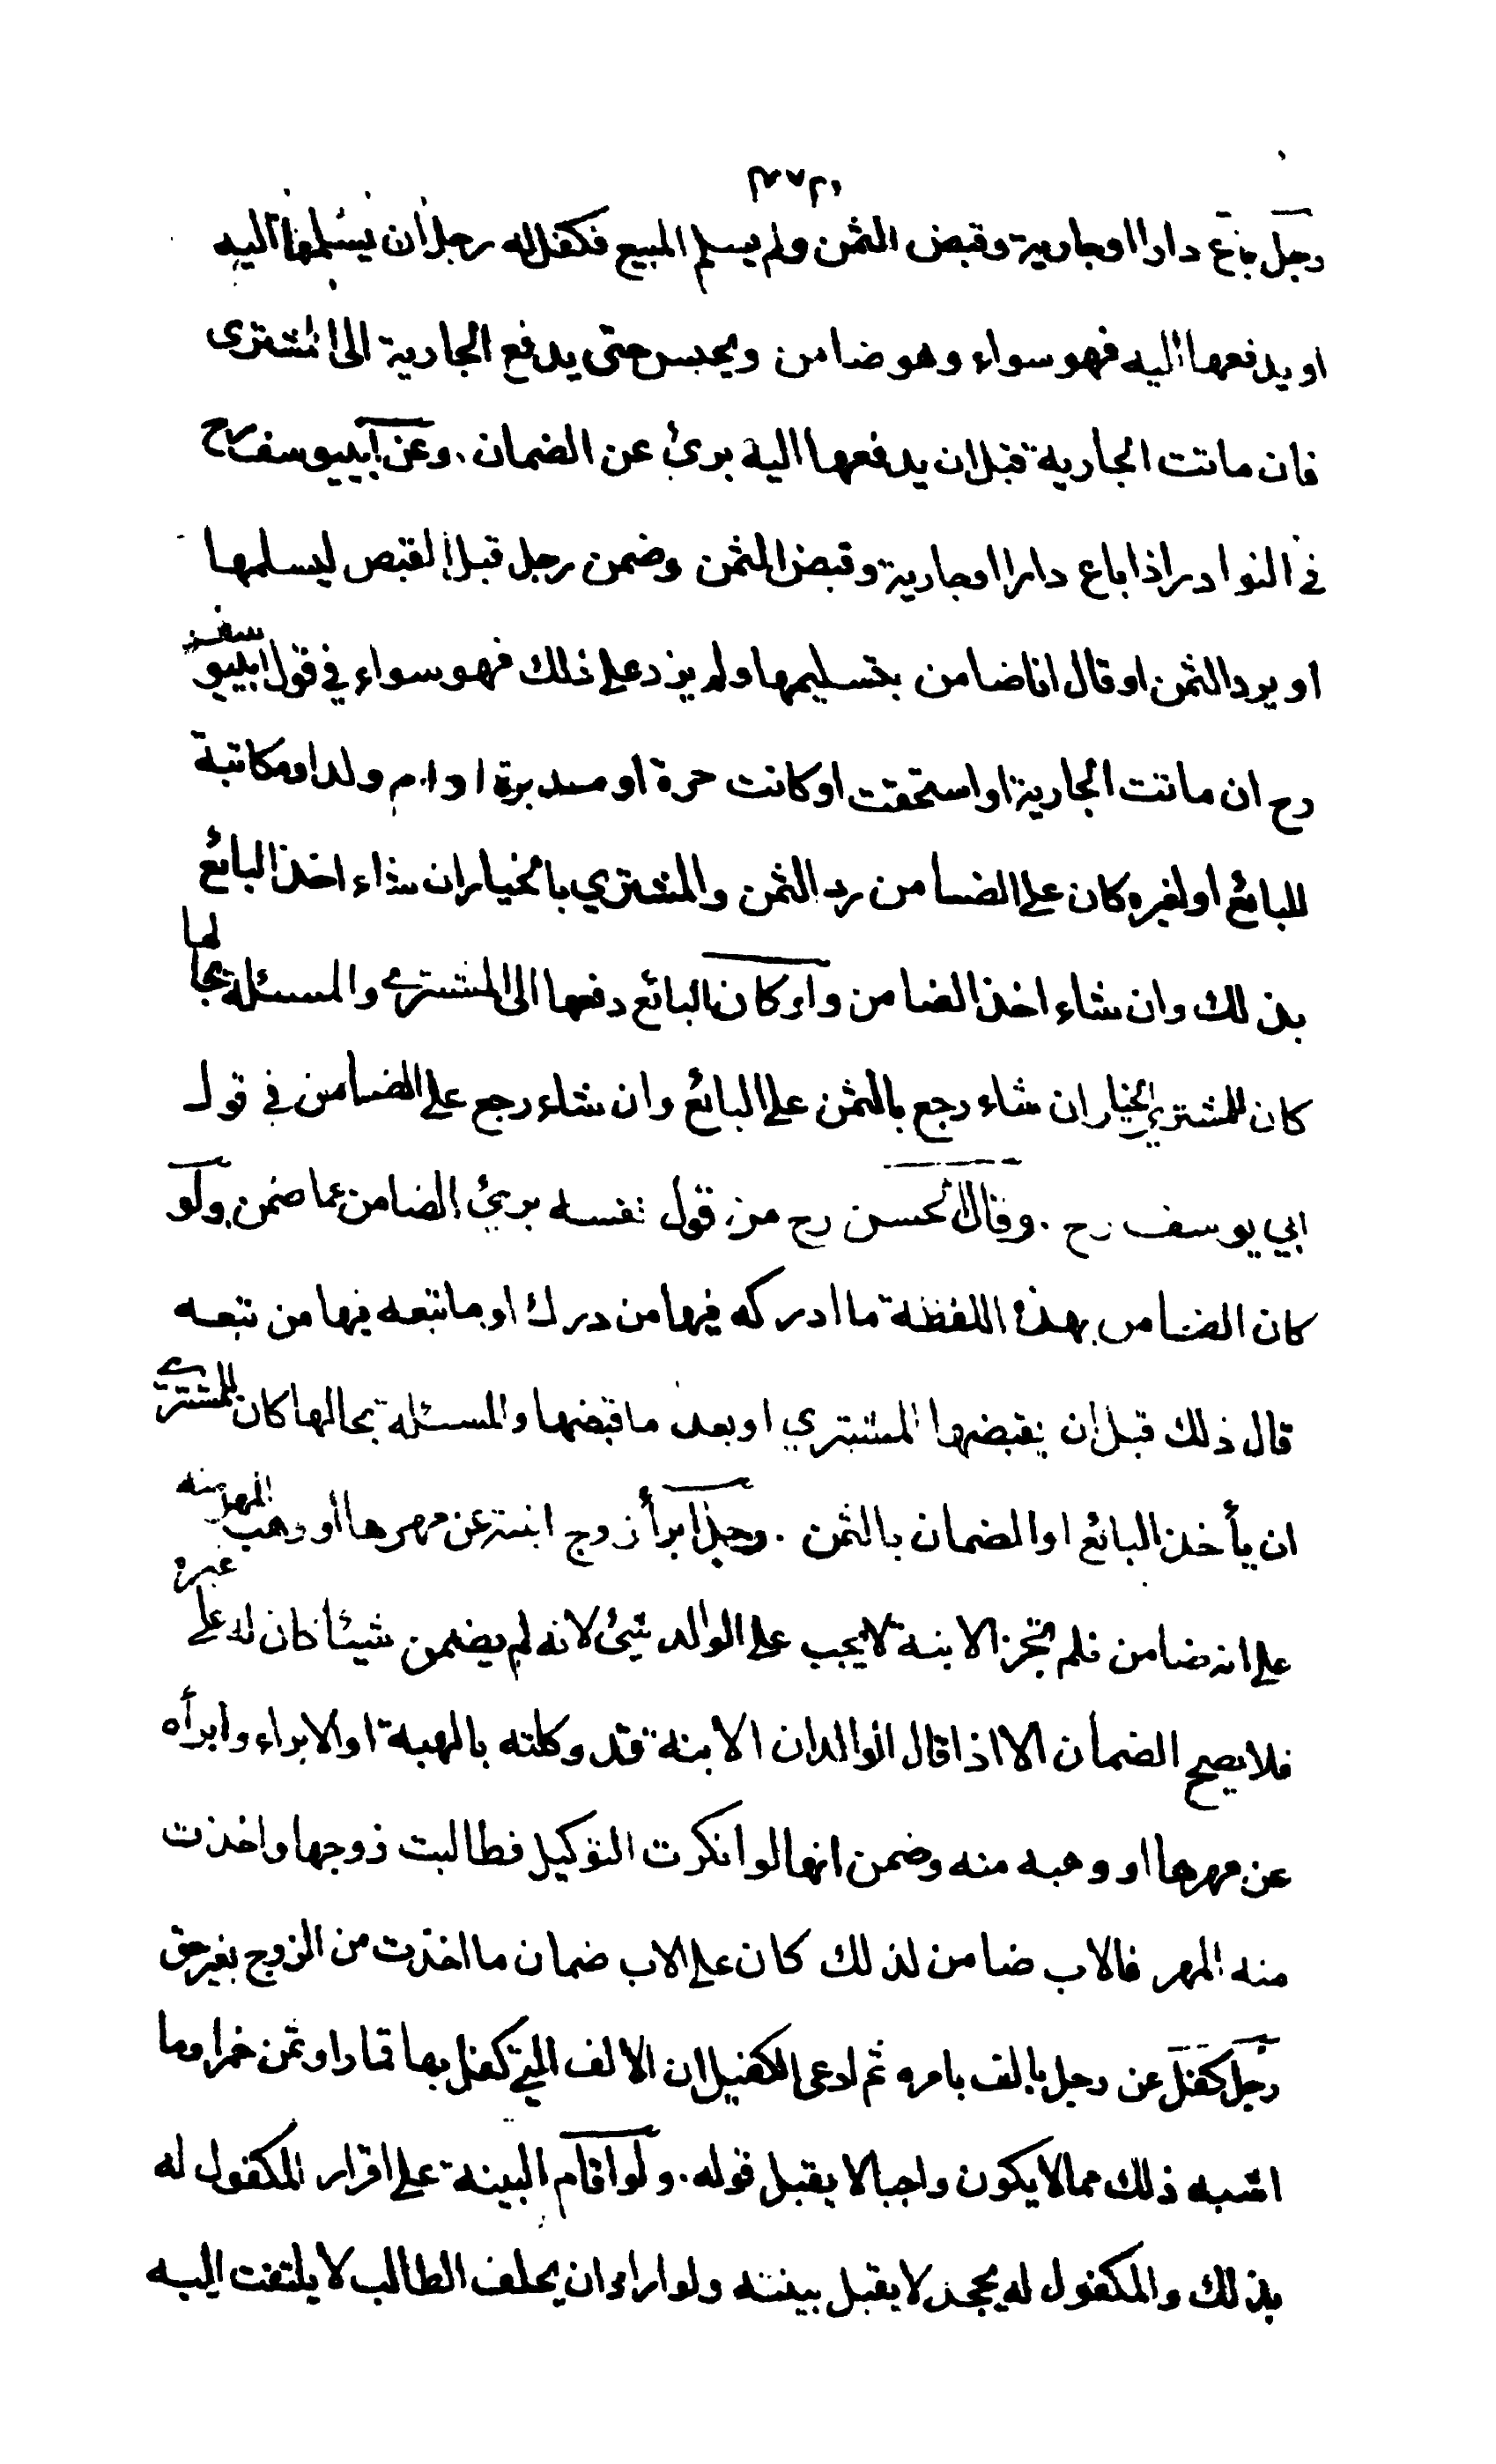 رجل باع دارا اوجارية وقبض الثمن ولم يسلم المبيع فكفل له رجل ان يسلمها اليه
او يدفعها اليه فهو سواء وهو ضامن ويحبس حتى يدفع الجارية الى المشترى
فان ماتت الجارية قبل ان يدفعها اليه برئ عن الضمان . وعن ابييوسف رح
في النوادر اذا باع دارا اوجارية وقبض الثمن وضمن رجل قبل القبض ليسلمها
او يرد الثمن او قال انا ضامن بتسليمها ولم يزد على ذلك فهو سواء في قول ابييوسف
رح ان ماتت الجارية او استحقت او كانت حرة او مدبرة او ام ولد او مكاتبة
للبائع او لغيره كان على الضامن رد الثمن والمشتري بالخيار ان شاء اخذ البائع
بذلك وان شاء اخذ الضامن ولو كان البائع دفعها الى المشتري والمسئلة بحالها
كان للمشتري الخيار ان شاء رجع بالثمن على البائع وان شاء رجع على الضامن في قول
ابي يوسف رح . وقال الحسن رح من قول نفسه بريئ الضامن عما ضمن ولو
كان الضامن بهذه اللفظة ما ادركه فيها من درك او ما تبعه فيها من تبعه
قال ذلك قبل ان يقبضها المشتري او بعد ما قبضها والمسئلة بحالها كان للمشتري
ان يأخذ البائع او الضمان بالثمن . رجل ابرأ زوج ابنته عن مهرها او وهب المهر منه
على انه ضامن فلم تجز الابنة لا يجب على الوالد شيئ لانه لم يضمن شيئا كان له على غيره
فلا يصح الضمان الا اذا قال الوالد ان الابنة قد وكلته بالهبة او الابراء وابرأه
عن مهرها او وهبه منه وضمن انها لو انكرت التوكيل فطالبت زوجها واخذت
منه المهر فالاب ضامن لذلك كان على الاب ضمان ما اخذت من الزوج بغير حق
رجل كفل عن رجل بالف بامره ثم ادعى الكفيل ان الالف التي كفل بها قمار او ثمن خمر او ما
اشبه ذلك مما لا يكون واجبا لا يقبل قوله . ولو اقام البينة على اقرار المكفول له
بذلك والمكفول له يجحد لا يقبل بينته ولو اراد ان يحلف الطالب لا يلتفت اليه